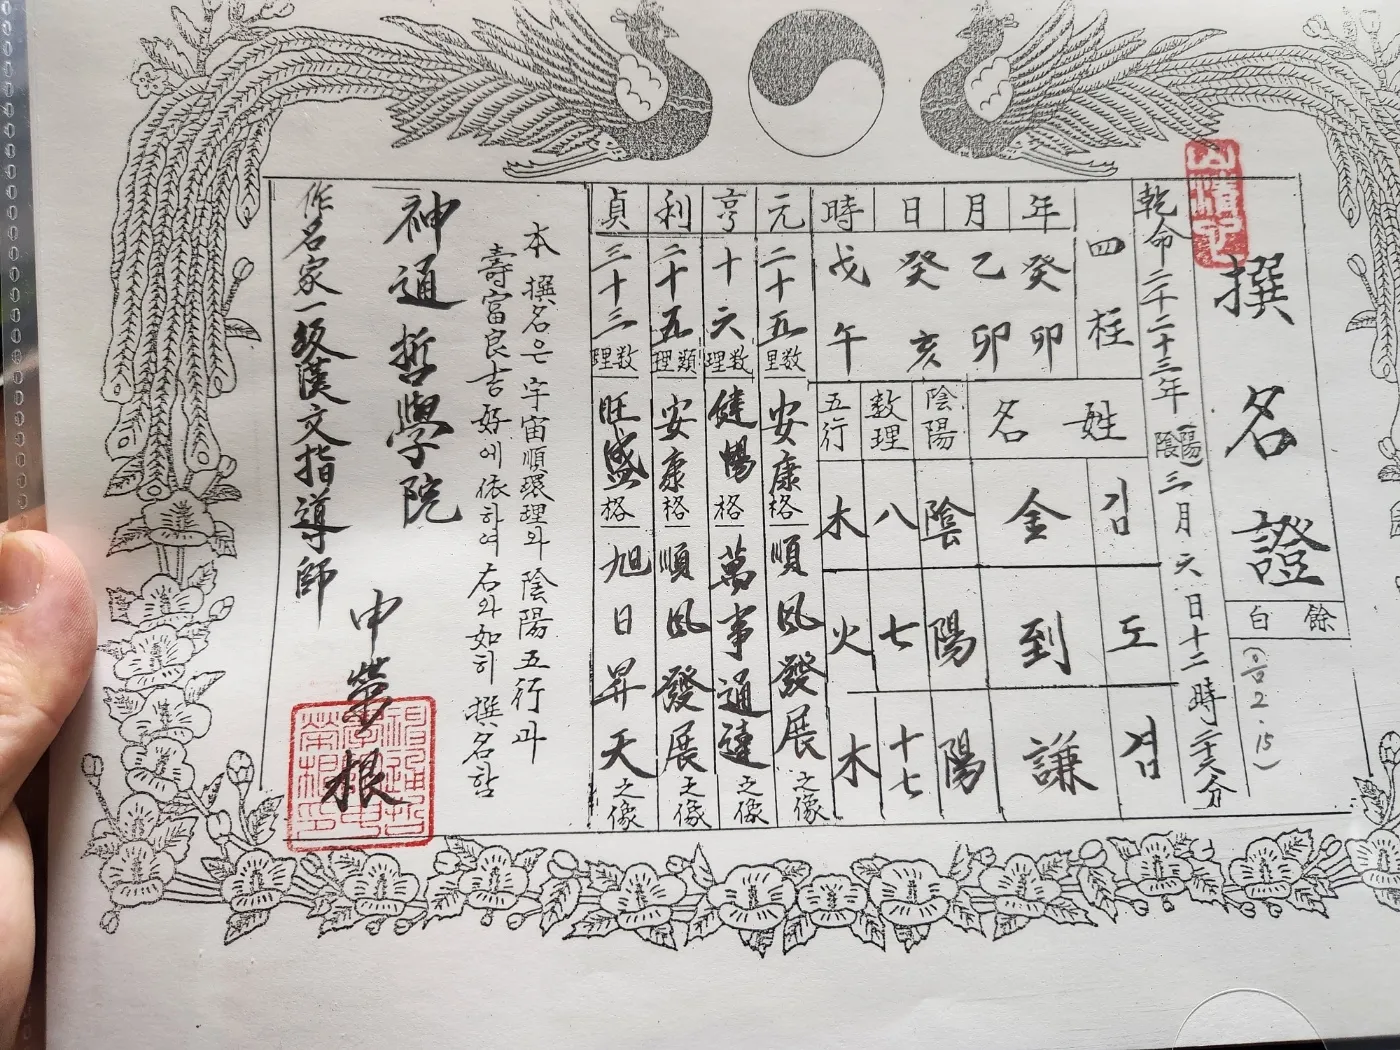 撰名證
餘白
(음2.15)
乾命 二千二十三年 (陰陽) 三月 六日 十二時 二十六分
四柱
年 癸卯
月 乙卯
日 癸亥
時 戊午
姓名 陰陽 数理 五行
김 金 陰 八 木
도 到 陽 七 火
겸 謙 陽 十七 木
元 二十五 数里 安康格 順風發展之像
亨 十六 数理 健暢格 萬事通達之像
利 二十五 類理 安康格 順風發展之像
貞 三十三 数理 旺盛格 旭日昇天之像
本 撰名은 宇宙順環理와 陰陽五行과
壽富良吉好에 依하여 右와 如히 撰名함
神通哲學院
申榮根
作名家一級漢文指導師